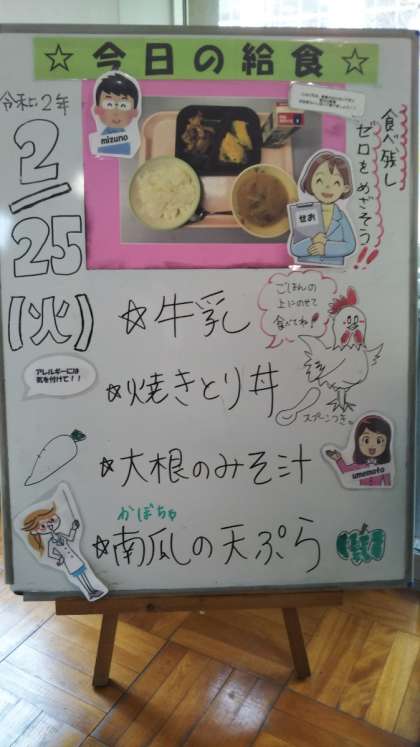 ☆今日の給食☆
令和2年
2/25
(火)
mizuno
せお
食べ残し
ゼロをめざそう!!
☆牛乳
ごはんの
上にのせて
食べてね!
アレルギーには
気を付けて!!
☆焼きとり丼
スプーンつき。
☆大根のみそ汁
umemoto
かぼちゃ
☆南瓜の天ぷら